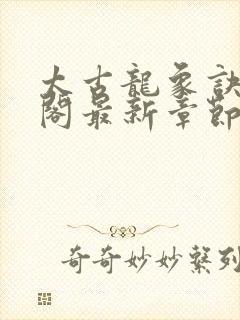 太古龍象訣
閣最新章節
奇奇妙妙繫列